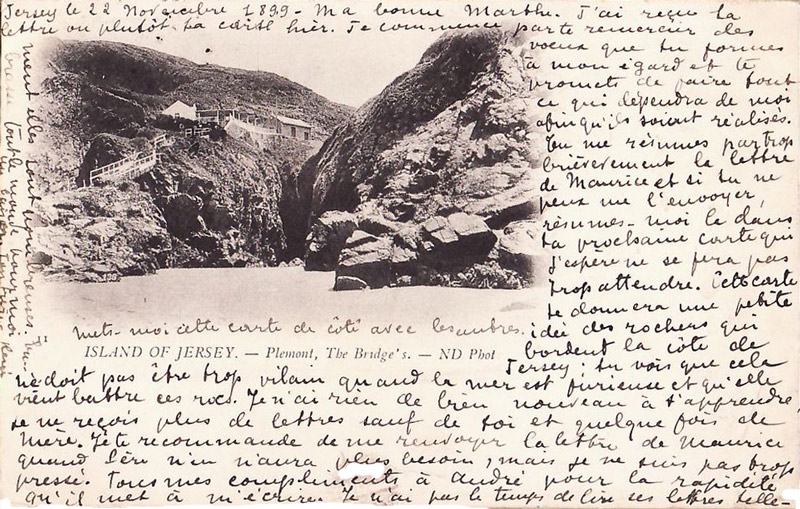 Jersey le 22 Novembre 1899 - Ma bonne Marthe. J'ai reçu ta
lettre ou plutôt ta carte hier. Je commence par te remercier des
voeux que tu formes
à mon égard et te
promets de faire tout
ce qui dépendra de moi
afin qu'ils soient réalisés.
Tu me résumes par trop
brièvement la lettre
de Maurice et si tu ne
peux me l'envoyer,
résumes-moi le dans
ta prochaine carte qui
j'espère ne se fera pas
trop attendre. Cette carte
te donnera une petite
idée des rochers qui
bordent la côte de
Jersey; tu vois que cela
ne doit pas être trop vilain quand la mer est furieuse et qu'elle
vient battre ces rocs. Je n'ai rien de bien nouveau à t'apprendre,
je ne reçois plus de lettres sauf de toi et quelque fois de
Mère. Je te recommande de me renvoyer la lettre de Maurice
quand Père n'en n'aura plus besoin, mais je ne suis pas trop
pressé. Tous mes compliments à André pour la rapidité
qu'il met à m'écrire. Je n'ai pas le temps de lire ses lettres telle-
ment elles sont nombreuses.
tout le monde pour moi
mets-moi cette carte de côté avec les autres.
ISLAND OF JERSEY. — Plemont, The Bridge's. — ND Phot